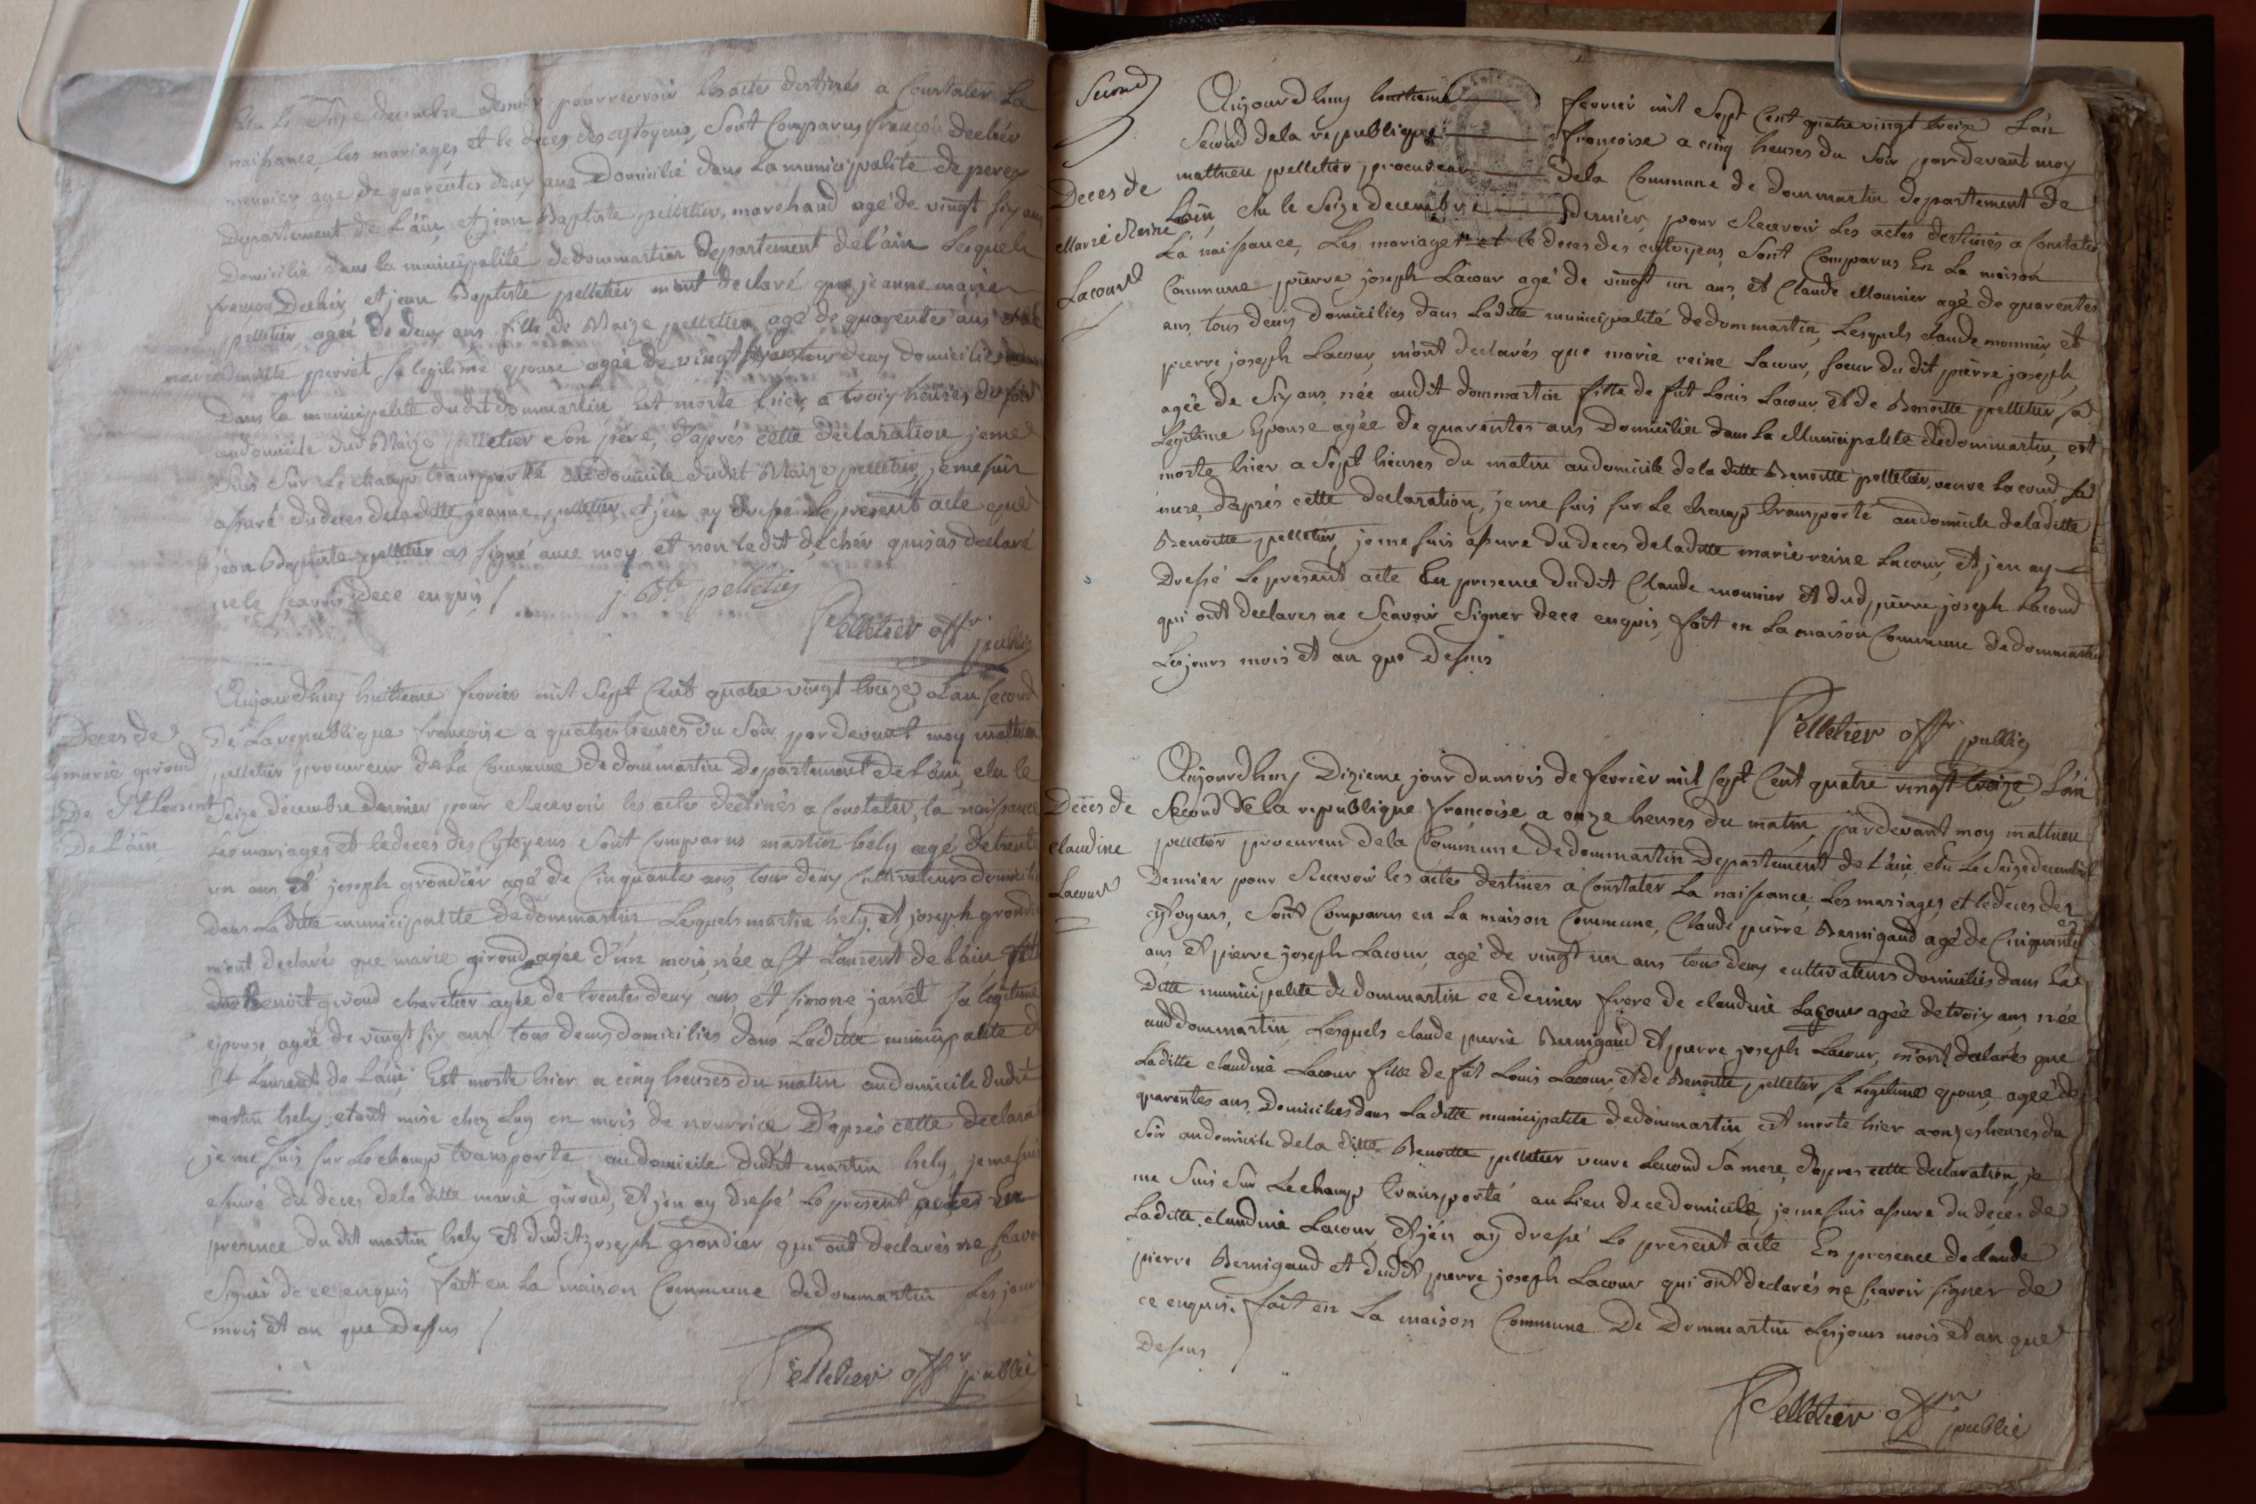 elu le Seize decembre dernier pour recevoir les actes destinés a Constater La
naissance, les mariages et le deces des citoyens, Sont Comparus françois Decher
meunier agé de quarentes deux ans Domicilié dans La municipalité de perex
Departement de L'ain, et jean Baptiste pelletier, marchand agé de vingt six ans
Domicilié dans la municipalité de dommartin Departement de l'ain Lesquels
françois Decher et jean Baptiste pelletier m'ont Declaré que jeanne marie
pelletier agée de deux ans fille de Blaize pelletier agé de quarentes ans et de
perret sa legitime epouse agée de vingt tous deux domiciliés
Dans la municipalité dudit dommartin Est morte hier a trois heures du soir
au domicile dud Blaize pelletier son pere, d'aprés cette déclaration je me
suis sur Le champ transporté au domicile dudit Blaize pelletier, je me suis
assuré du deces de laditte jeanne pelletier et j'en ay dressé le present acte que
jean Baptiste pelletier as signé avec moy et non ledit decher qui as declaré
ne le scavoir de ce enquis /
j Bte pelletier
Pelletier offr public
Aujourdhuy huitieme fevrier mil Sept Cent quatre vingt treize L'an second
de La republique françoise a quatres heures du Soir pardevant moy mathieu
Deces de
marie giroud
De St Laurent
De L'ain
pelletier procureur de la Commune de dommartin Departement de L'ain, elu le
Seize décembre dernier pour Recevoir les actes destinés a Constater, la naissance
Les mariages et le deces des Cytoyens Sont Comparus martin hely agé de trente
un ans et joseph grondier agé de Cinquantes ans, tous deux Cultivateurs domiciliés
dans La ditte municipalité de dommartin Lesquels martin hely et joseph grondier
m'ont declaré que marie giroud agée d'un mois née a St Laurent de L'ain fille
de Benoit giroud charetier agée de trentes deux ans, et simone janet sa legitime
epouse, agée de vingt six ans tous deux domiciliés dans La ditte municipalité de
St Laurent de L'ain Est morte hier a cinq heures du matin au domicile dudit
martin hely, etant mise chez Luy en mois de nourrice D'apres cette declaration
je me suis sur Le champ transporté au domicile dudit martin hely, je me suis
assuré du deces de la ditte marie giroud, et j'en ay dressé Le present actes En
presence du dit martin hely et dudit joseph grondier qui ont declarés ne scavoir
Signer de ce enquis fait en La maison Commune de dommartin Les jour
mois et an que dessus /
Pelletier offr public
Second
Aujourdhuy huitieme fevrier mil Sept Cent quatre vingt treize L'an
Second de la republique françoise a cinq heures du Soir par devant moy
mathieu pelletier procureur de la Commune de dommartin departement de
Deces de
Marie Reine
Lacourd
Lain elu le Seize decembre dernier, pour Recevoir Les actes destinés a Constater
La naissance, Les mariages et le deces des citoyens Sont Comparus En La maison
Commune pierre joseph Lacour agé de vingt un ans, et Claude Mounier agé de quarentes
ans, tous deux domiciliés dans Laditte municipalité de dommartin, Lesquels claude mounier et
pierre joseph Lacour, m'ont declarés que marie reine Lacour, soeur du dit pierre joseph,
agée de Six ans née audit dommartin fille de fut Louis Lacour et de Benoitte pelletier sa
Legitime Epouse agée de quarentes ans Domiciliée dans La Municipalité de dommartin, est
morte hier a Sept heures du matin au domicile de la ditte Benoitte pelletier, veuve Lacourd, sa
mere, d'aprés cette declaration, je me suis sur Le champ transporté au domicile de laditte
Benoitte pelletier, je me suis assuré du deces de laditte marie reine Lacour, et j'en ay
Dressé Le present acte En presence dudit Claude mounier et dud pierre joseph Lacourd
qui ont declarés ne Scavoir Signer de ce enquis, fait en La maison Commune de dommartin
Les jours mois et an que dessus
Pelletier offr public
Aujourdhuy Dizieme jour du mois de fevrier mil sept Cent quatre vingt treize L'an
Second de la republique françoise, a onze heures du matin, pardevant moy mathieu
Déces de
claudine
Lacourt
pelletier procureur de la Commune de dommartin Departement de L'ain, elu Le Seize decembre
Dernier pour Recevoir les actes destinés a Constater La naissance, Les mariages et le deces des
cytoyens, Sont Comparus en La maison Commune, Claude pierre Bernigaud agé de Cinquantes
ans et pierre joseph Lacour, agé de vingt un ans tous deux cultivateurs domiciliés dans La
Ditte municipalité de dommartin ce dernier frere de claudine Lacour agée de trois ans, née
aud dommartin, Lesquels claude pierre Bernigaud et pierre joseph Lacour, m'ont declarés que
Laditte claudine Lacour fille de fut Louis Lacour et de Benoitte pelletier sa Legitime epouse, agée de
quarentes ans Domiciliés dans La ditte municipalité de dommartin est morte hier a onzes heures du
Soir au domicile de la ditte Benoitte pelletier veuve Lacourd Sa mere, d'apres cette declaration, je
me Suis Sur Le champ transporté au Lieu de ce domicile, je me suis assuré du deces de
Laditte claudine Lacour et j'en ay dressé Le present acte En presence de claude
pierre Bernigaud et dudit pierre joseph Lacour qui ont declarés ne scavoir signer de
ce enquis. fait en La maison Commune De Dommartin Les jours mois et an que
Dessus
Pelletier offr public